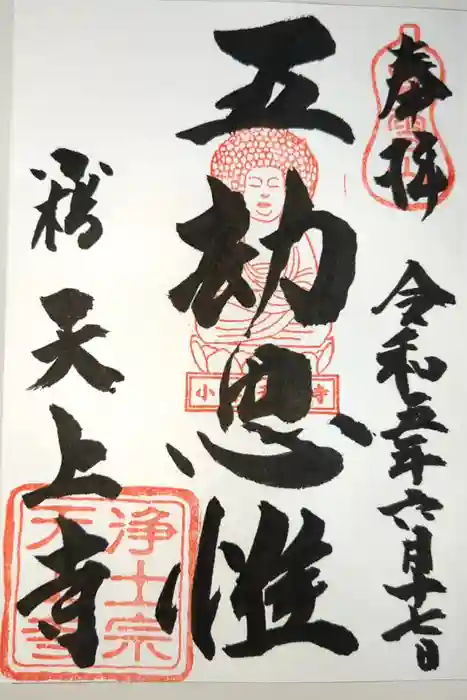 奉拝
令和五年六月十七日
五劫思惟
天上寺
浄土宗
天上寺